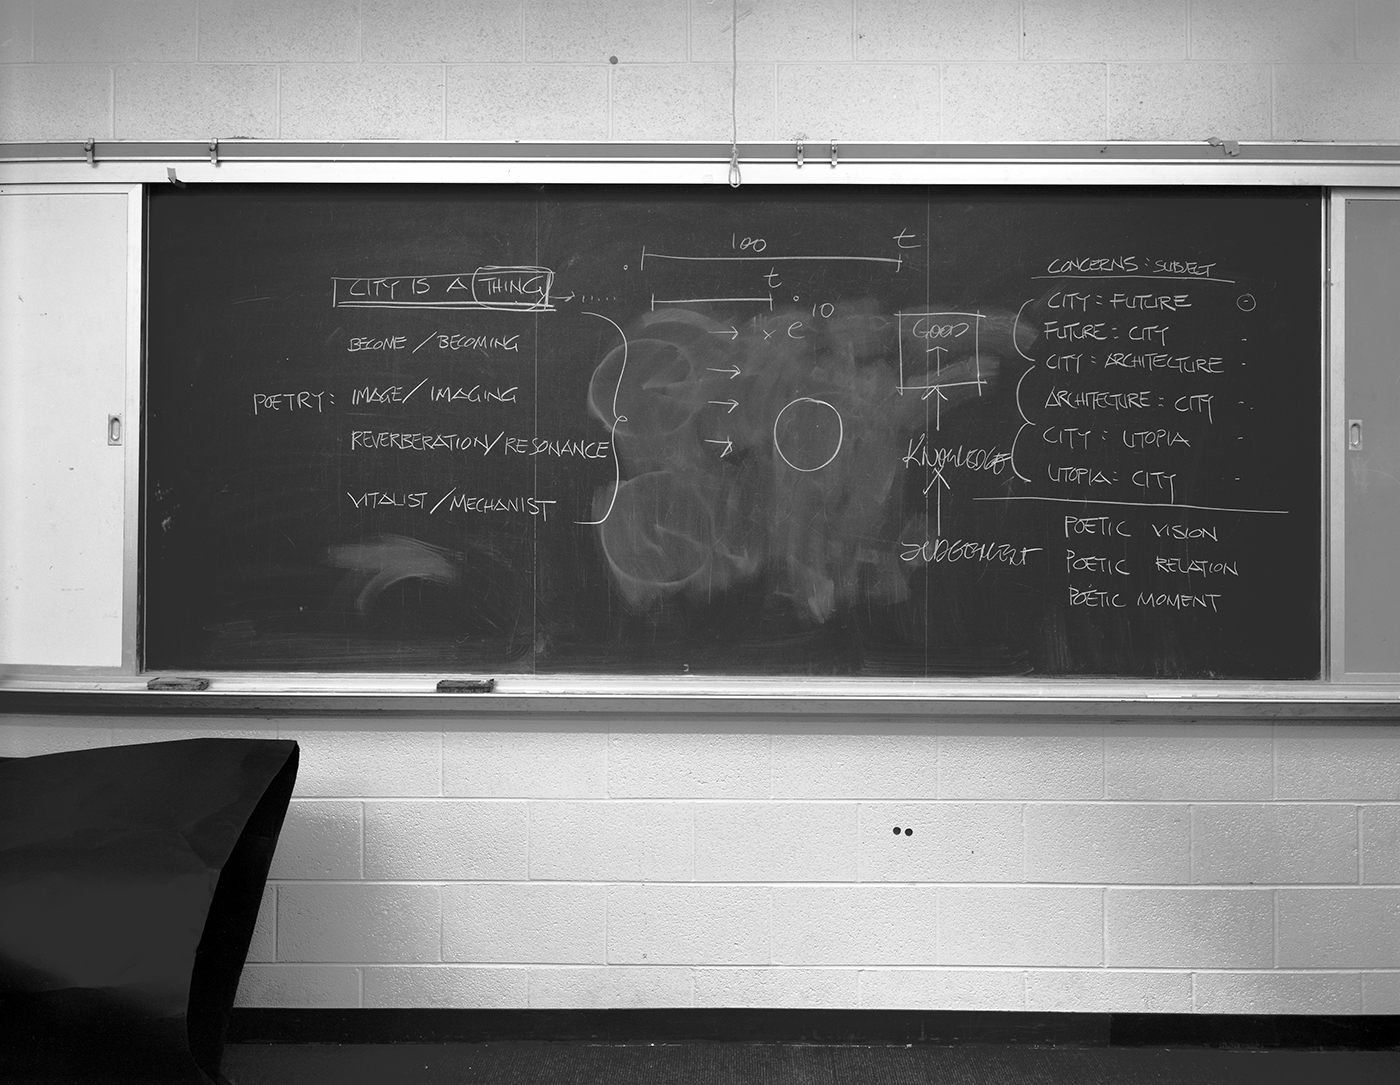 CITY IS A THING
BECOME / BECOMING
POETRY: IMAGE / IMAGING
REVERBERATION / RESONANCE
VITALIST / MECHANIST
100 t
t
10
e
GOOD
KNOWLEDGE
JUDGEMENT
CONCERNS: SUBJECT
CITY = FUTURE
FUTURE = CITY
CITY = ARCHITECTURE
ARCHITECTURE = CITY
CITY = UTOPIA
UTOPIA = CITY
POETIC VISION
POETIC RELATION
POETIC MOMENT